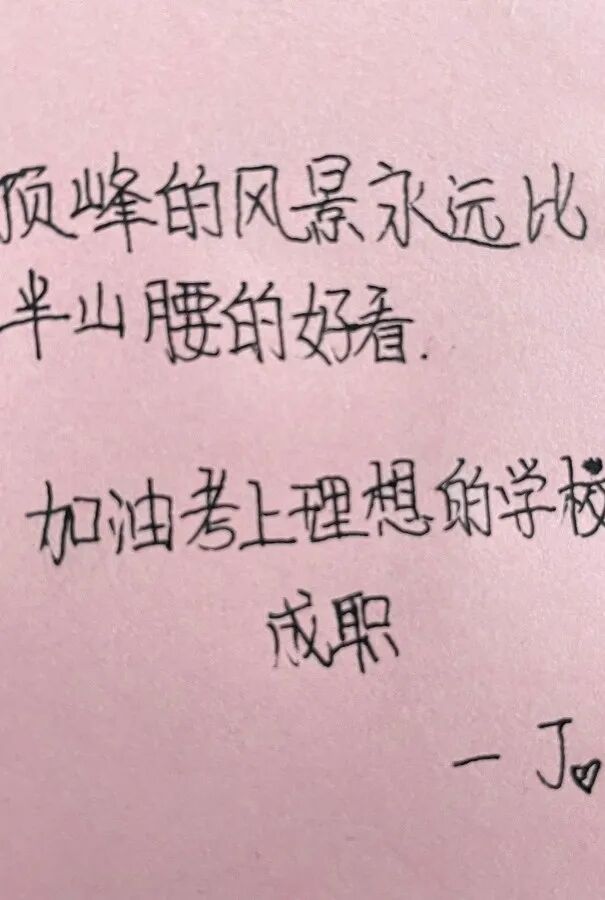 顶峰的风景永远比
半山腰的好看.
加油考上理想的学校
成职
一 J♡